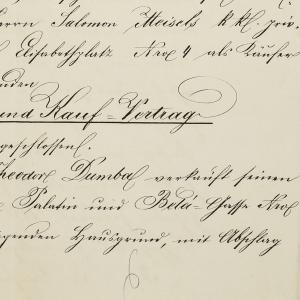 Herrn Salomon Meisels k. kl. priv.
Elisabethplatz Nro 4 als Käufer
und Kauf=Vertrag
geschlossen.
Theodor Dumba verkauft seinen
Palatin und Bela=Gasse Nro
Hausgrund, mit Abschlag